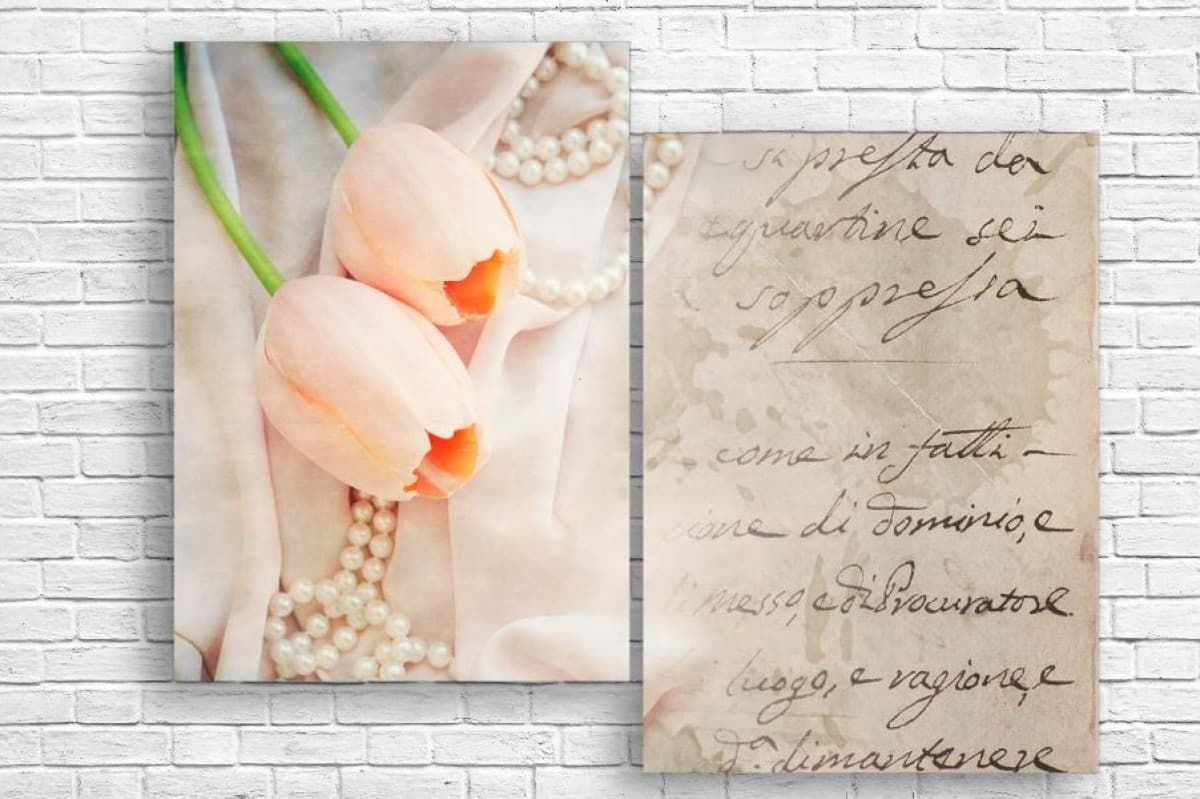 presta da
quartine sei
soppressa
come in fatti -
di dominio, e
messo, e di Procuratore
luogo, e ragione, e
d.ª dimantenere